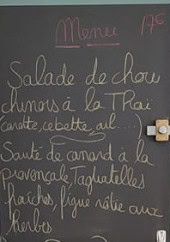 Menu 17€
Salade de chou
chinois à la Thaï
(carotte, cebette, ail....)
Sauté de canard à la
provençale, Tagliatelles
fraîches, figue rôtie aux
herbes